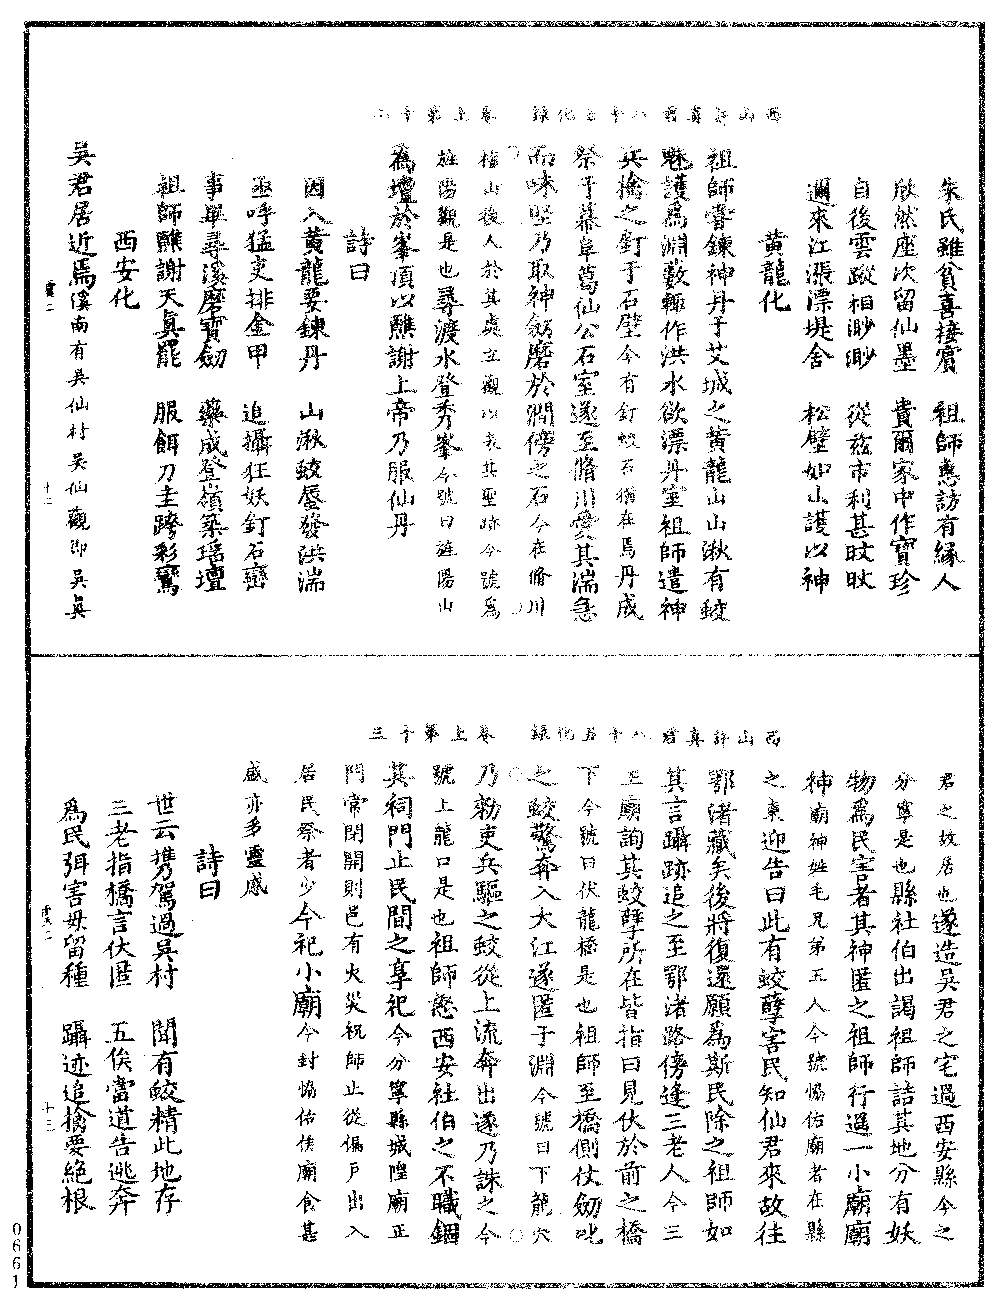 西山許真君八十五化錄　卷上第十二
朱氏雖貧喜接賓　祖師惠訪有緣人
欣然座次留仙墨　貴爾家中作寶珍
自後雲蹤相渺渺　從茲市利甚旼旼
邇來江漲漂堤舍　松壁如山護以神
黃龍化
祖師嘗鍊神丹于艾城之黃龍山山湫有蛟
魅護為淵藪輒作洪水欲漂丹室祖師遣神
兵擒之釘于石壁今有釘蛟石猶在焉丹成
祭于幕阜葛仙公石室遂至脩川愛其湍急
而味堅乃取神劒磨於澗傍之石今在脩川
梅山後人於其處立觀以表其聖跡今號為
旌陽觀是也尋渡水登秀峯今號曰旌陽山
為壇於峯頂以醮謝上帝乃服仙丹
詩曰
因入黃龍要鍊丹　山湫蛟蜃發洪湍
亟呼猛吏排金甲　追攝狂妖釘石巒
事畢尋溪磨寶劒　藥成登嶺築瑤壇
祖師醮謝天真罷　服餌刀圭跨彩鸞
西安化
吳君居近焉溪南有吳仙村吳仙觀即吳真
虞二　十二
西山許真君八十五化錄　卷上第十三
君之故居也遂造吳君之宅過西安縣今之
分寧是也縣社伯出謁祖師詰其地分有妖
物為民害者其神匿之祖師行過一小廟廟
神廟神姓毛兄弟五人今號協佑廟者在縣
之東迎告曰此有蛟孽害民知仙君來故往
鄂渚藏矣後將復還願為斯民除之祖師如
其言躡跡追之至鄂渚路傍逢三老人今三
王廟詢其蛟孽所在皆指曰見伏於前之橋
下今號曰伏龍橋是也祖師至橋側仗劒叱
之蛟驚奔入大江遂匿于淵今號曰下龍穴
乃勑吏兵驅之蛟從上流奔出遂乃誅之今
號上龍口是也祖師怒西安社伯之不職錮
其祠門止民間之享祀今分寧縣城隍廟正
門常閉開則邑有火災祝師止從偏戶出入
居民祭者少今祀小廟今封協佑侯廟食甚
盛亦多靈感
詩曰
世云攜駕過吳村　聞有蛟精此地存
三老指橋言伏匿　五侯當道告逃奔
為民弭害毋留種　躡迹追擒要絕根
虞二　十三
0661